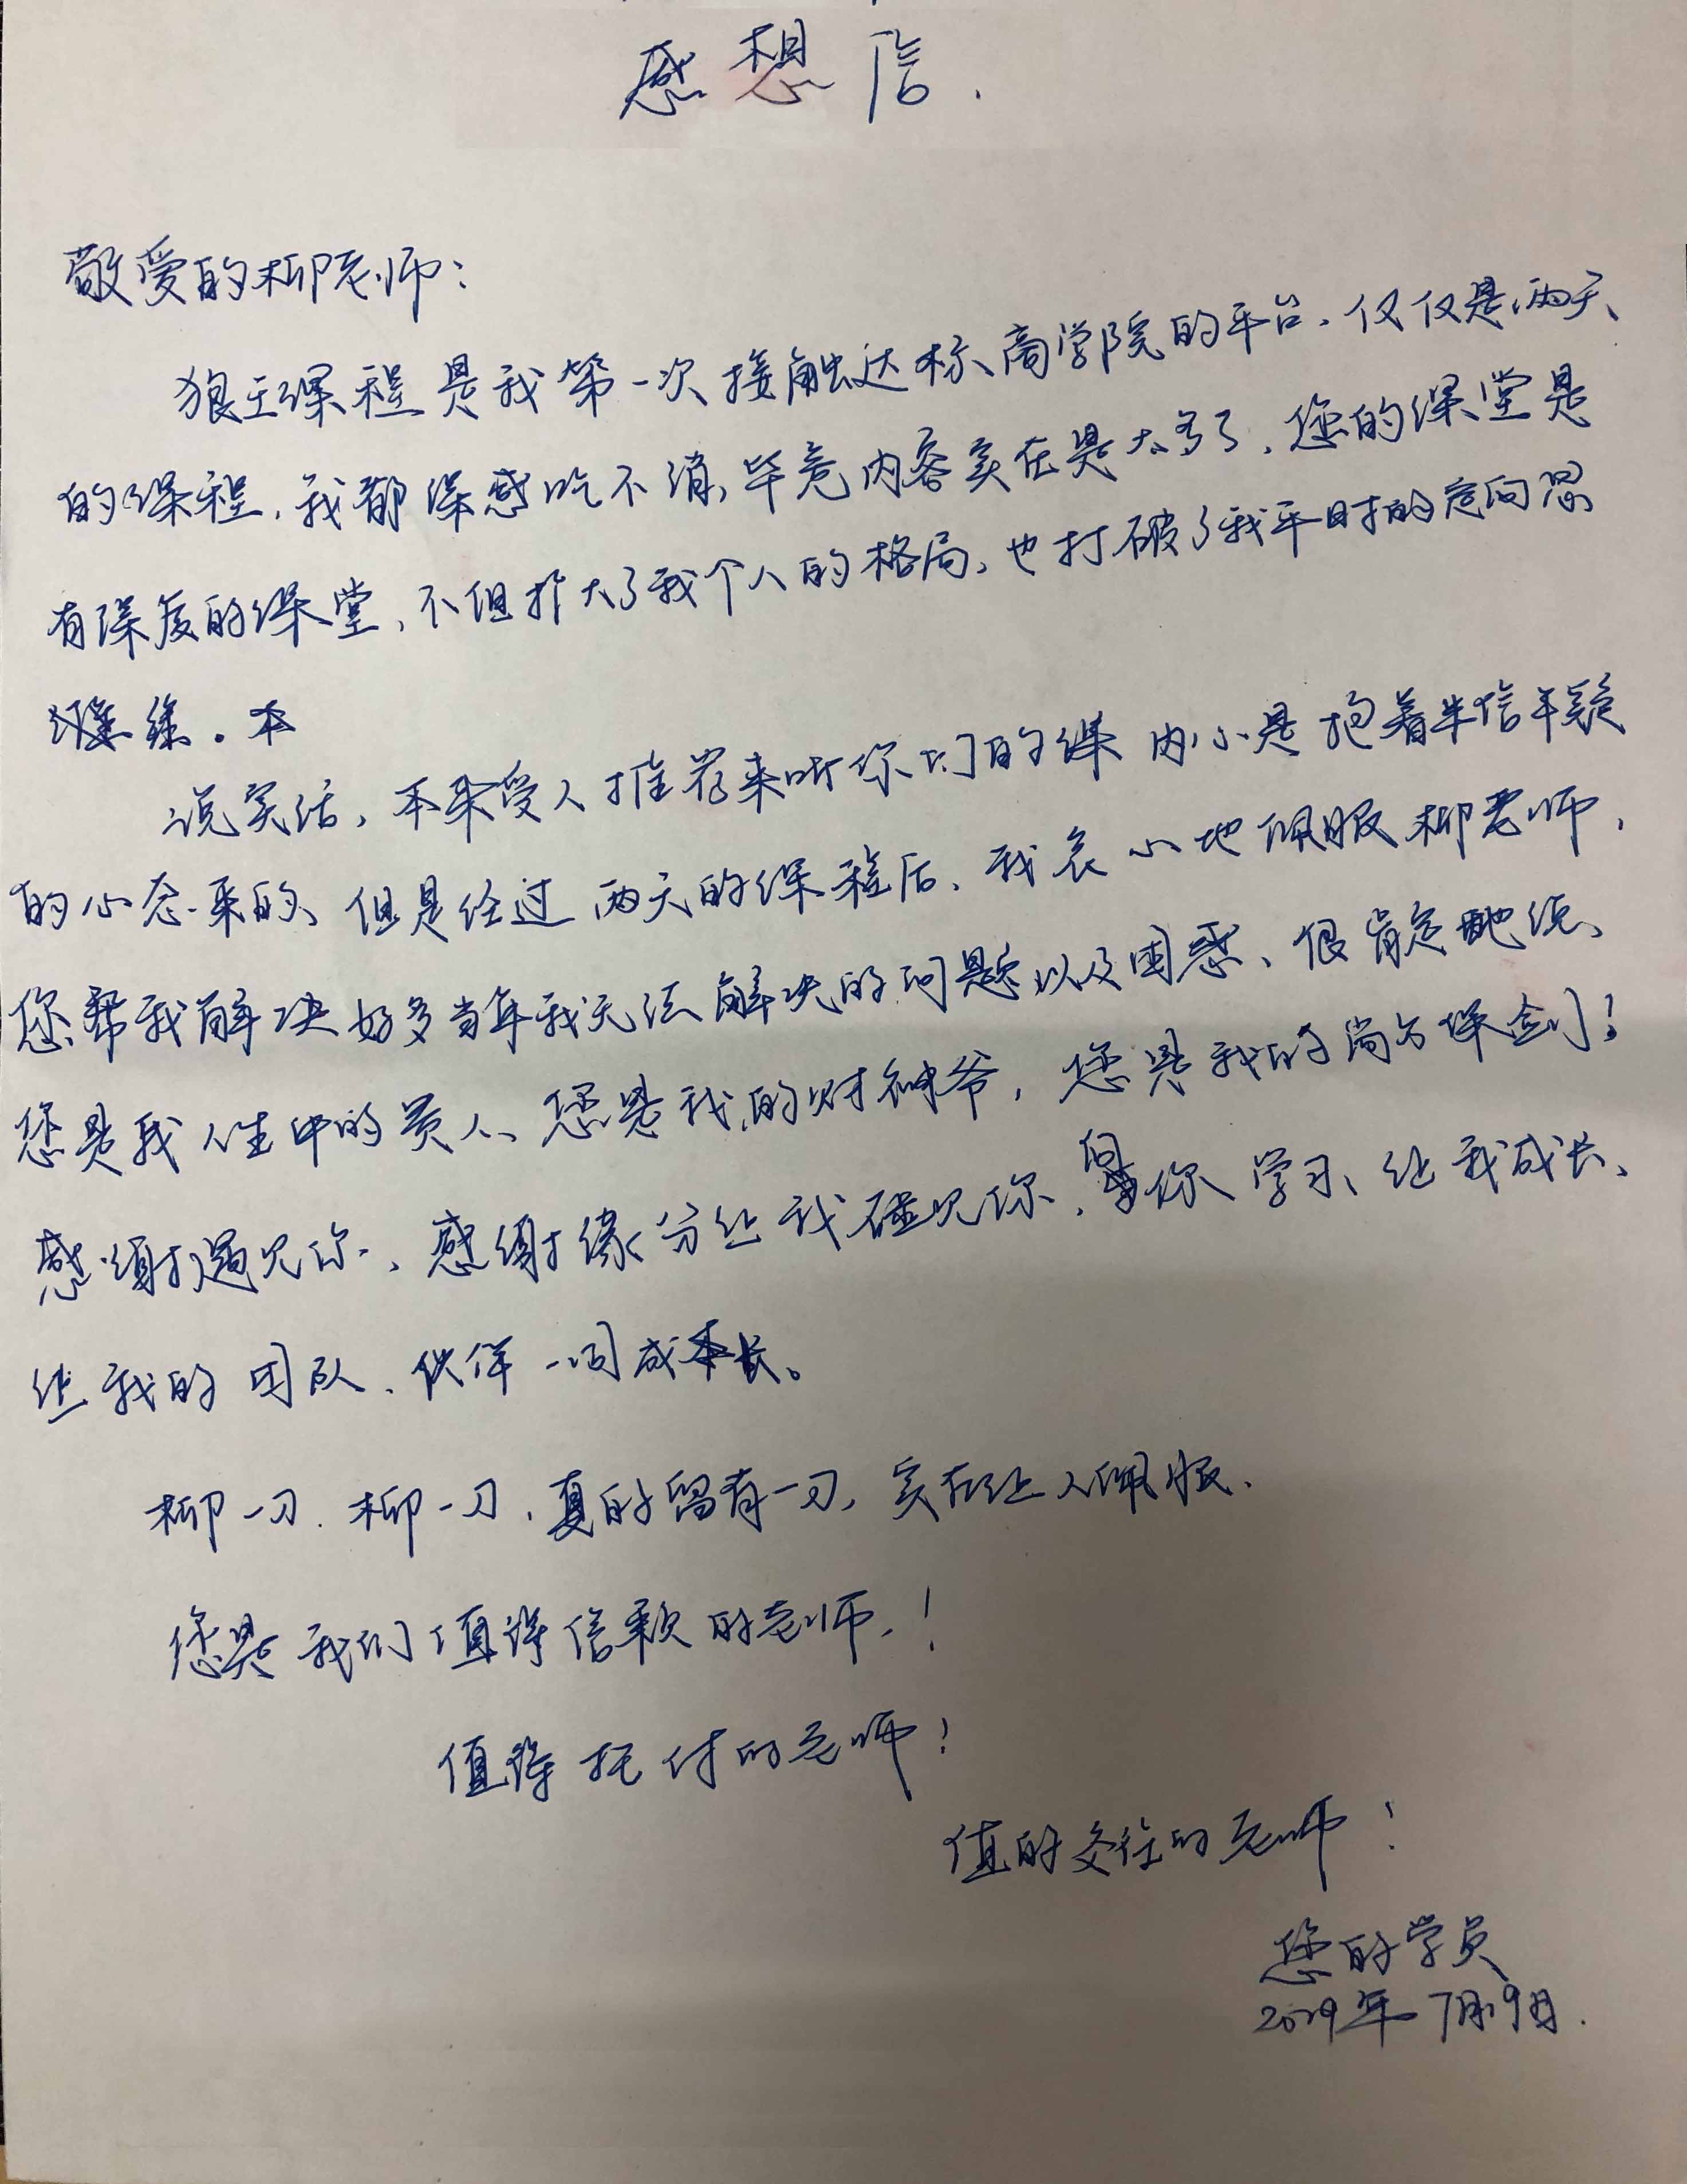 感想信.
敬爱的柳老师：
狼王课程是我第一次接触达标商学院的平台、仅仅是两天
的课程，我都深感吃不消，毕竟内容实在是太多了，您的课堂是
有深度的课堂、不但扩大了我个人的格局、也打破了我平时的定向思
继练。本
说实话，本来受人推荐来听你们的课 内心是抱着半信半疑
的心态来的、但是经过两天的课程后、我衷心地佩服柳老师，
您帮我解决好多当年我无法解决的问题以及困惑、很肯定地说、
您是我人生中的贵人、您是我的财神爷，您是我的尚方保剑！
感谢遇见你、感谢缘分让我碰见你，向你学习、让我成长、
让我的团队、伙伴一同成长。
柳一刀、柳一刀，真的留有一刀，实在让人佩服、
您是我们值得信赖的老师！
值得托付的老师！
值的交往的老师！
您的学员
2019年7月9日.